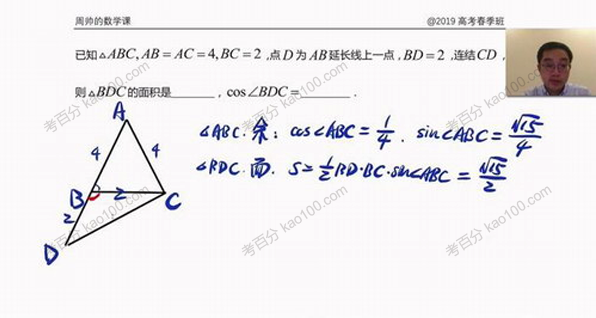 周帅的数学课 @2019 高考春季班
已知△ABC, AB = AC = 4, BC = 2 ,点 D 为 AB 延长线上一点 , BD = 2 ,连结 CD ,
则△BDC 的面积是______ , cos∠BDC = ______ .
A
4 4
B 2 C
2
D
△ABC. 余: cos∠ABC = 1/4 . sin∠ABC = √15/4
△BDC. 面. S = 1/2 BD·BC·sin∠ABC = √15/2
考百分 kao100.com
考百分 kao100.com
考百分 kao100.com
考百分 kao100.com
考百分 kao100.com
考百分 kao100.com